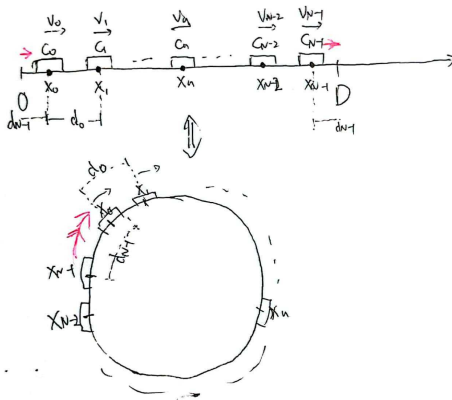 V₀ V₁ Vₙ V_N-2 V_N-1
C₀ C₁ Cₙ C_N-2 C_N-1
O X₀ X₁ Xₙ X_N-2 X_N-1 D
d_N-1 d₀ d_N-1
d₀
X₀ X₁
d_N-1
X_N-1
X_N-2 Xₙ